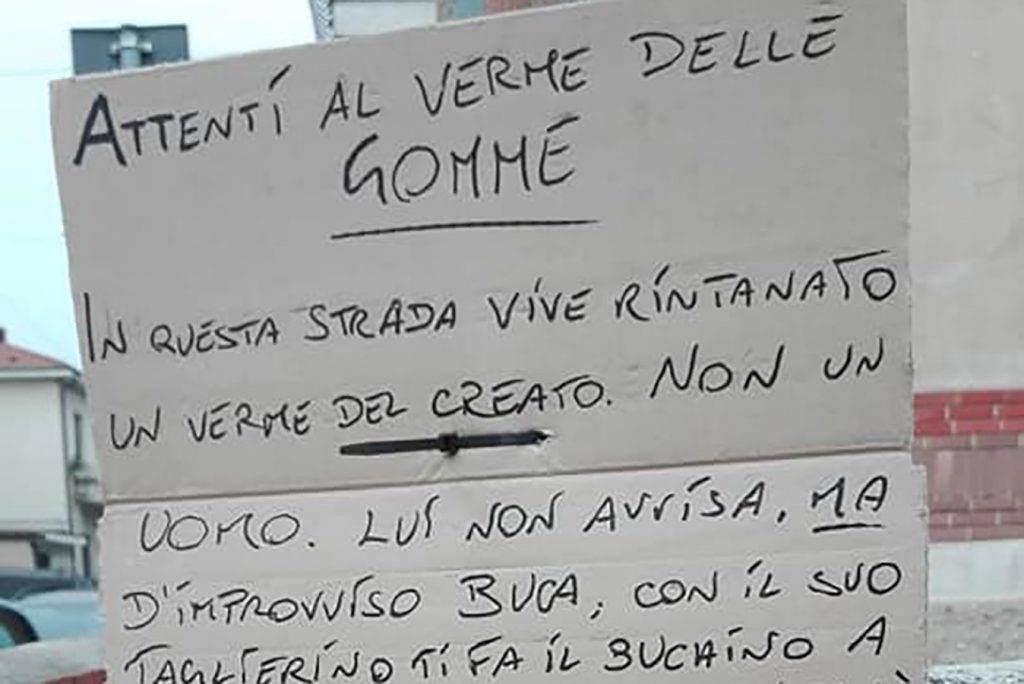 ATTENTI AL VERME DELLE
GOMME
IN QUESTA STRADA VIVE RINTANATO
UN VERME DEL CREATO. NON UN
UOMO. LUI NON AVVISA, MA
D'IMPROVVISO BUCA, CON IL SUO
TAGLIERINO TI FA IL BUCHINO A